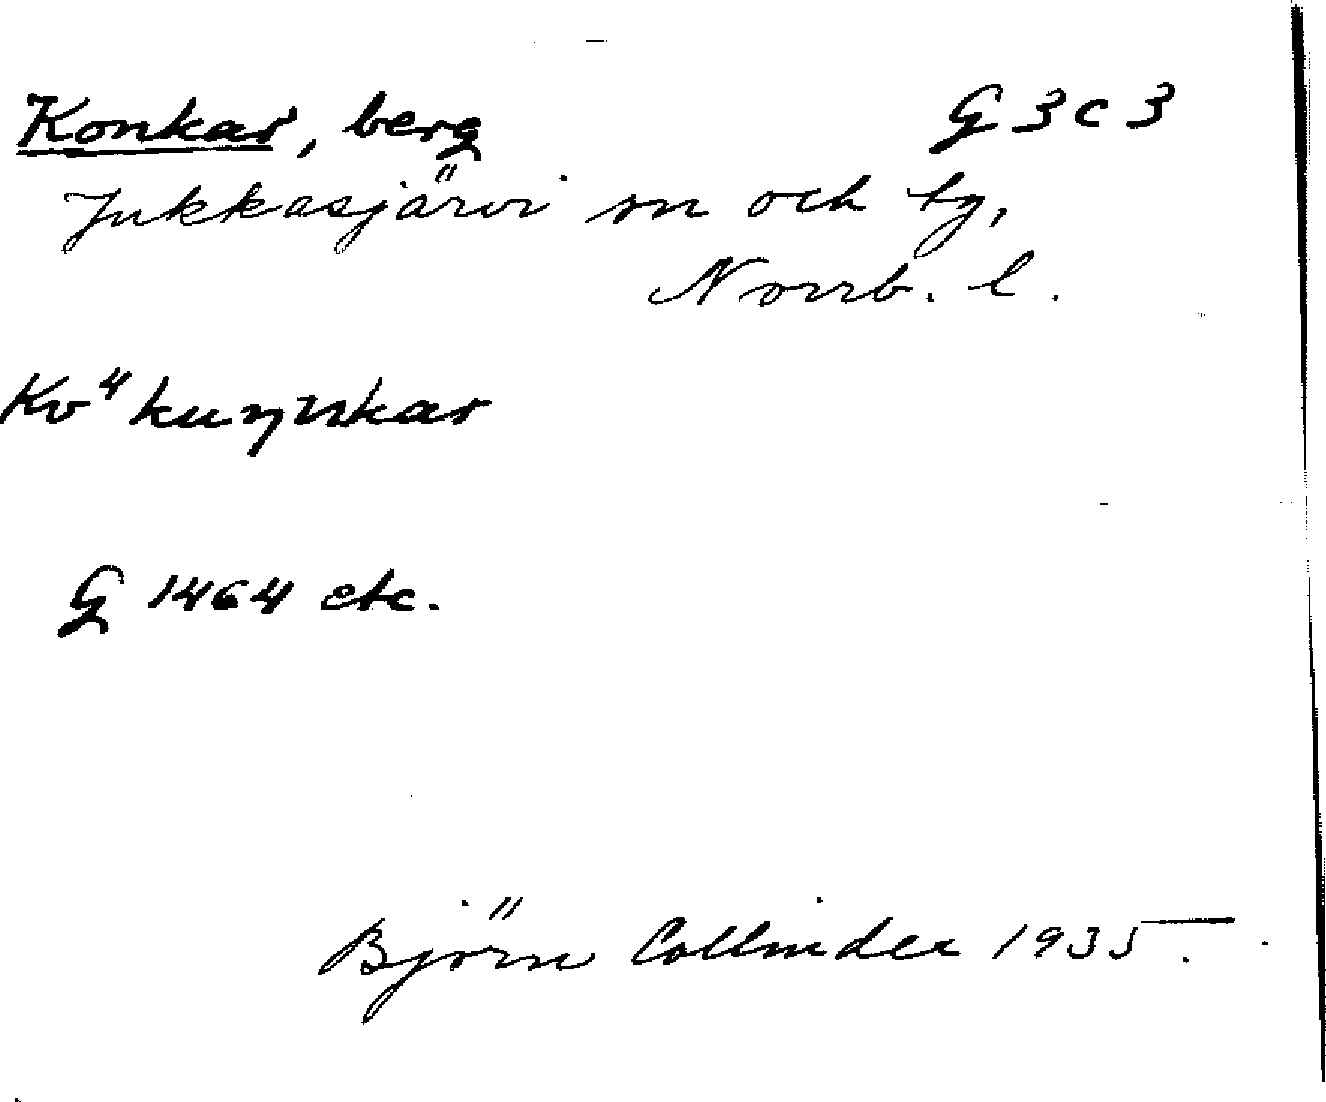 Konkar, berg G 3 c 3
Jukkasjärvi sn och tg,
Norrb. l.
Kv⁴ kuŋnkar
G 1464 etc.
Björn Collinder 1935.